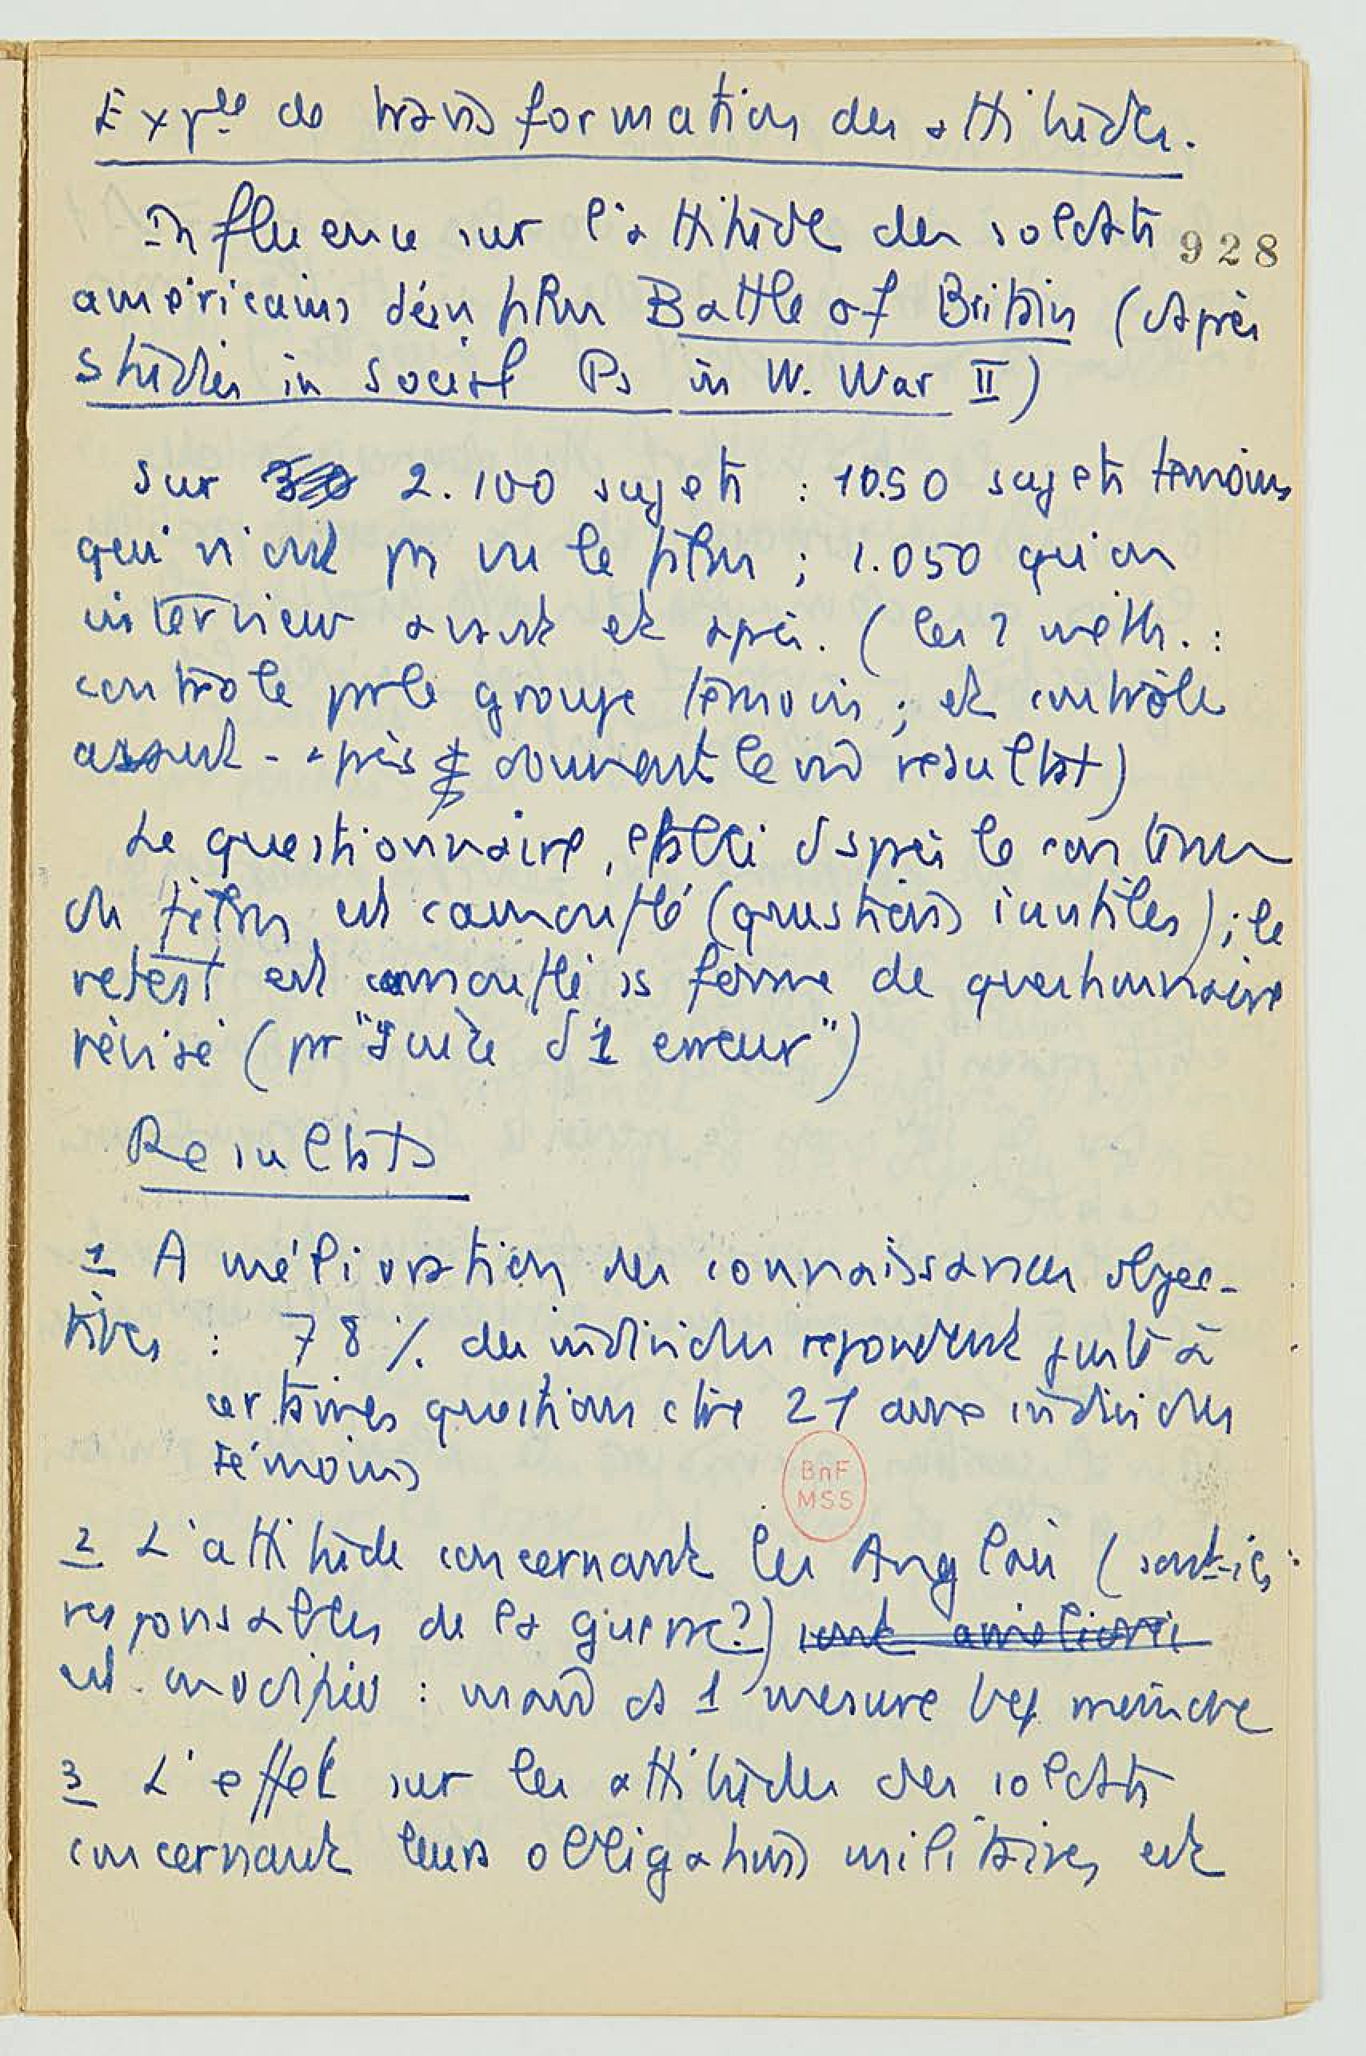 Exple de transformation des attitudes.
Influence sur l'attitude des soldats
928
américains d'un film Battle of Britain (d'après
Studies in Social Ps in W. War II)
Sur 2.100 sujets : 1050 sujets témoins
qui n'ont pas vu le film ; 1.050 qu'on
interview avant et après. (les 2 méth. :
contrôle par le groupe témoin ; et contrôle
avant-après donnant le mê résultat)
Le questionnaire, établi d'après le contenu
du film est camouflé (questions inutiles) ; le
retest est camouflé ss forme de questionnaire
révisé (pr "suite d'1 erreur")
Résultats
1 Amélioration des connaissances objec-
tives : 78 % des individus répondent juste à
certaines questions ctre 21 individus
témoins
BnF
MSS
2 L'attitude concernant les Anglais (sont-ils
responsables de la guerre?) sont améliorés
est modifiée : mais ds 1 mesure bcp moindre
3 L'effet sur les attitudes des soldats
concernant leurs obligations militaires est